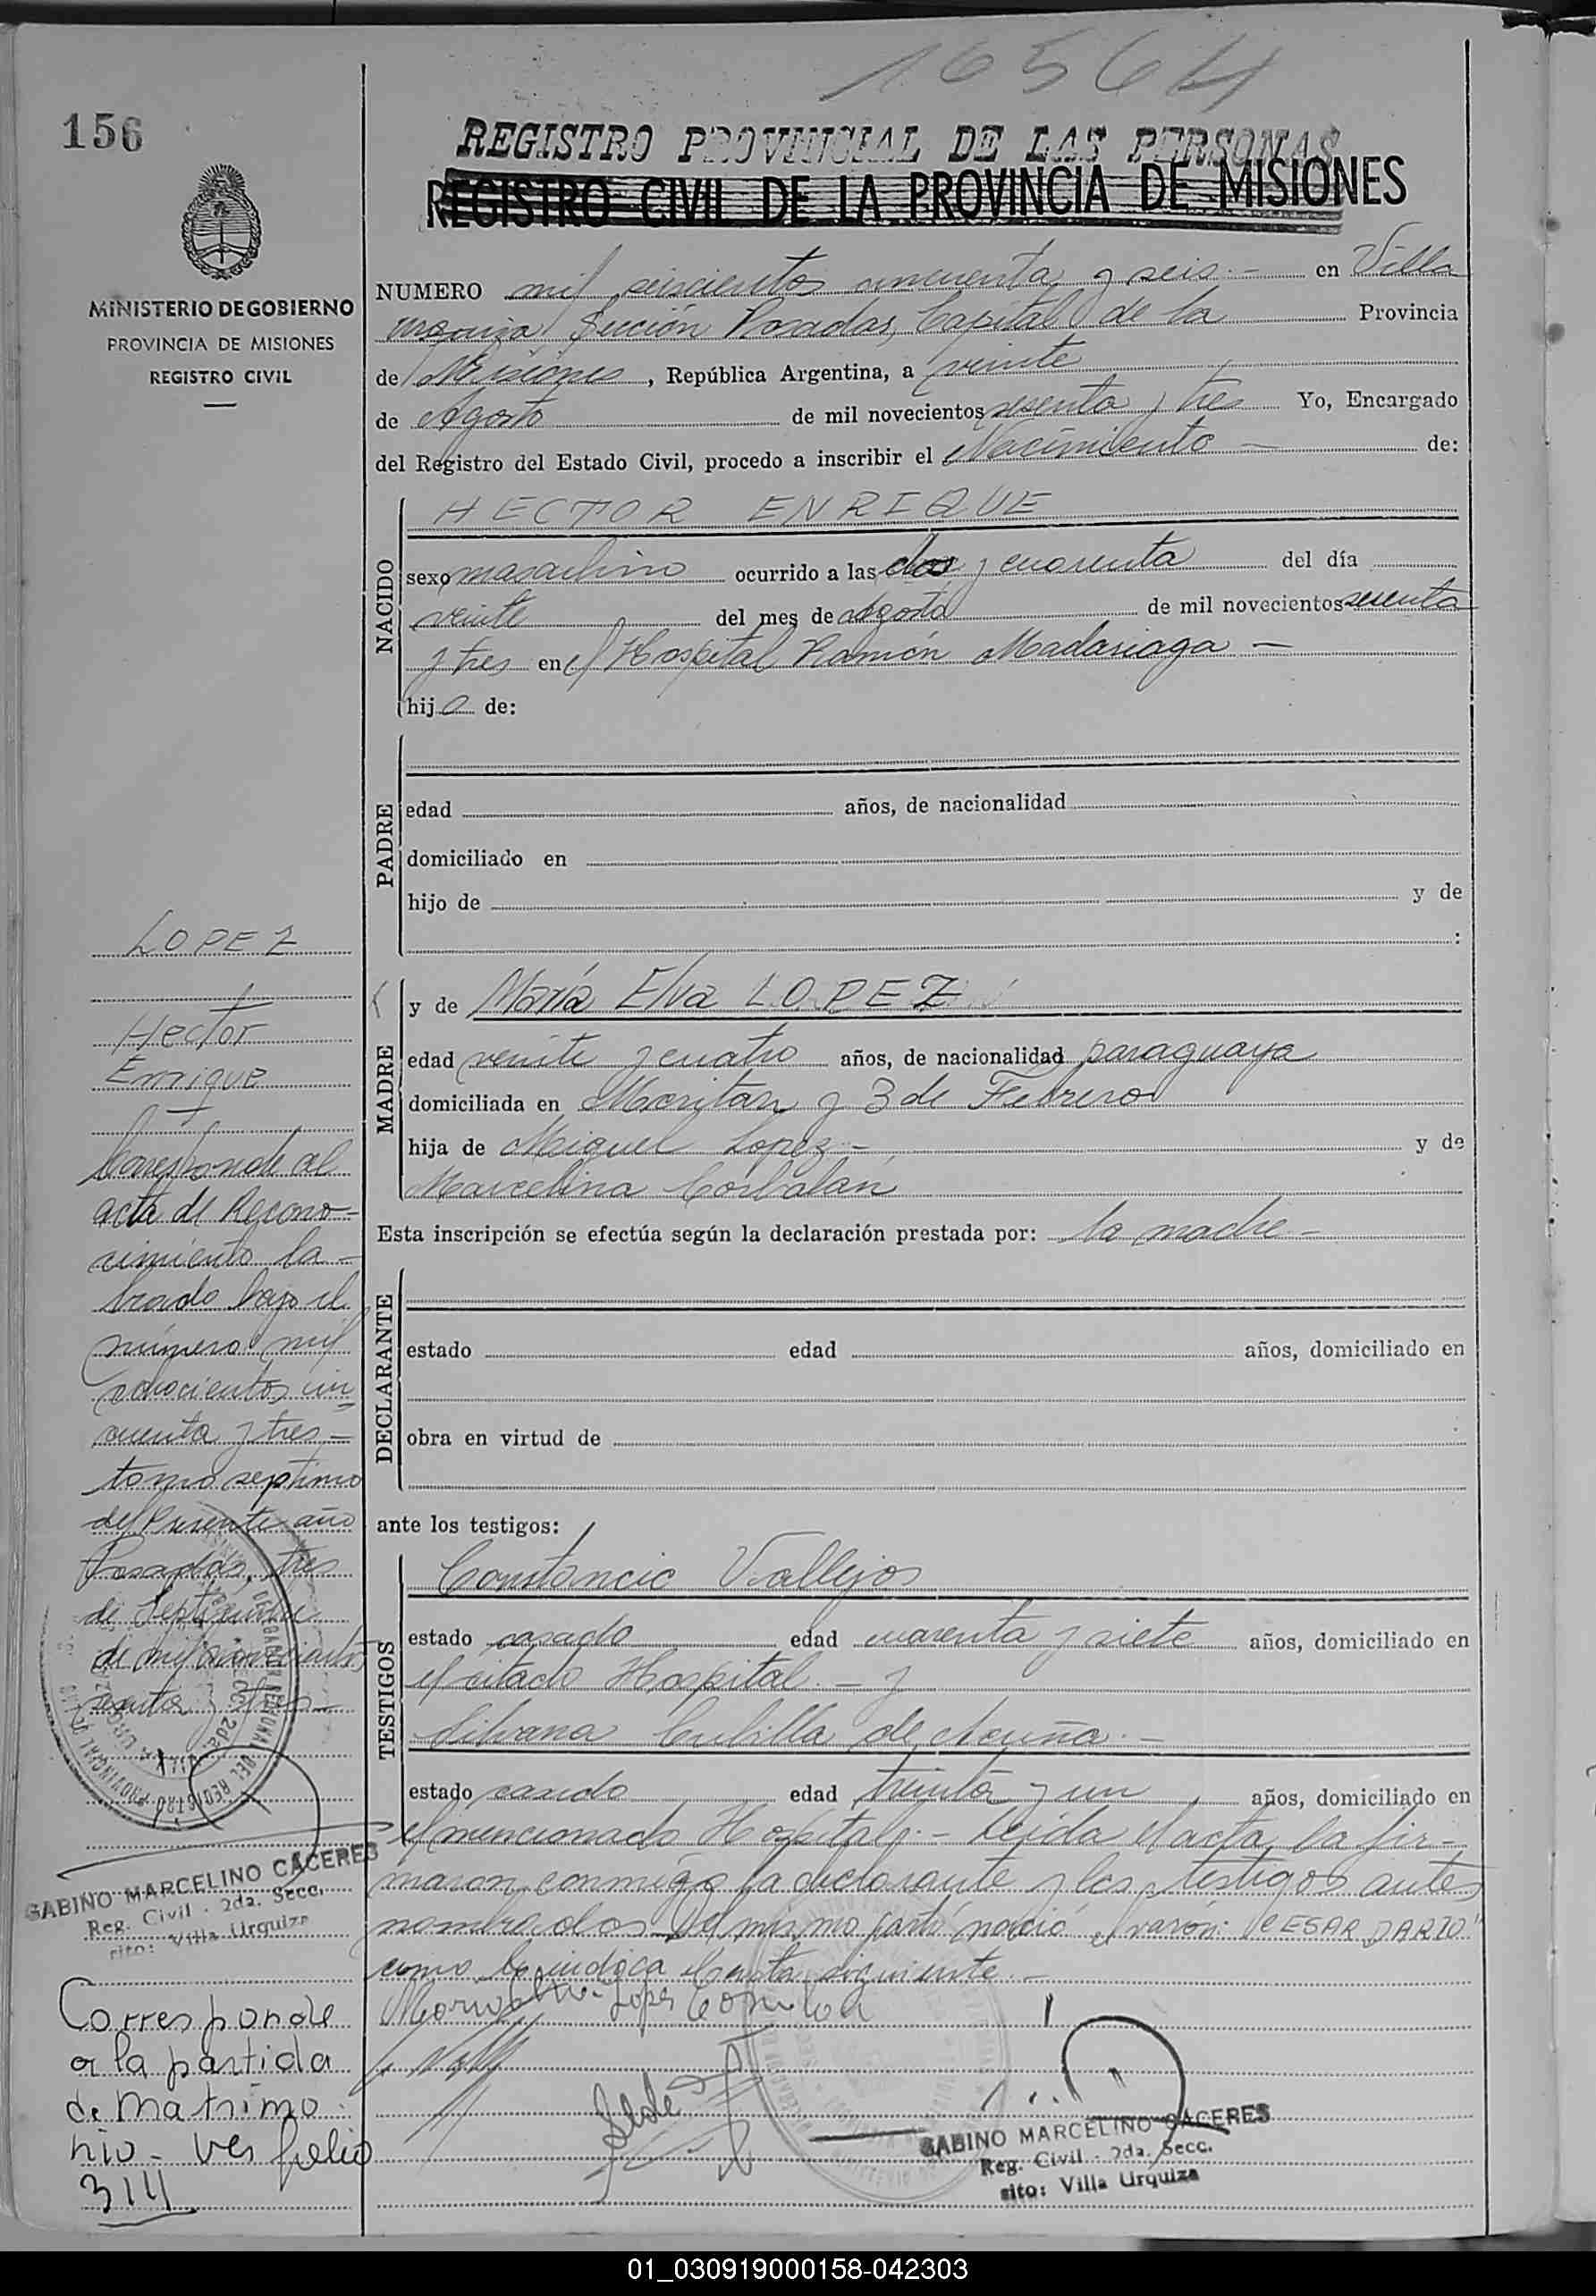 1656 4
156
REGISTRO PROVINCIAL DE LAS PERSONAS
REGISTRO CIVIL DE LA PROVINCIA DE MISIONES
MINISTERIO DE GOBIERNO
PROVINCIA DE MISIONES
REGISTRO CIVIL
NUMERO mil seiscientos cincuenta y seis.- en Villa
Urquiza Sección Posadas, Capital de la Provincia
de Misiones, República Argentina, a veinte
de Agosto de mil novecientos sesenta y tres Yo, Encargado
del Registro del Estado Civil, procedo a inscribir el Nacimiento - de:
NACIDO
HECTOR ENRIQUE
sexo masculino ocurrido a las dos y cuarenta del día
veinte del mes de agosto de mil novecientos sesenta
y tres en el Hospital Ramón Madariaga -
hijo de:
PADRE
edad años, de nacionalidad
domiciliado en
hijo de y de
:
MADRE
y de María Elva LOPEZ
edad veinte y cuatro años, de nacionalidad paraguaya
domiciliada en Moritan y 3 de Febrero
hija de Miguel Lopez - y de
Marcelina Corbalan
Esta inscripción se efectúa según la declaración prestada por: la madre -
DECLARANTE
estado edad años, domiciliado en
obra en virtud de
ante los testigos:
TESTIGOS
Constancio Vallejos
estado casado edad cuarenta y siete años, domiciliado en
el citado Hospital. - y
Silvana Cubilla de Acuña. -
estado casado edad treinta y un años, domiciliado en
el mencionado Hospital. - Leida el acta, la fir-
maron conmigo la declarante y los testigos antes
nombrados. Del mismo parto nació el varón: "CESAR DARIO"
como lo indica el acta siguiente. -
GABINO MARCELINO CACERES
Reg. Civil - 2da. Secc.
sito: Villa Urquiza
LOPEZ
Hector
Enrique
Corresponde al
acta de Recono-
cimiento la-
brado bajo el
número mil
ochocientos cin
cuenta y tres -
tomo septimo
del presente año
Posadas, tres
de Septiembre
de mil novecientos
sesenta y tres -
GABINO MARCELINO CACERES
Reg. Civil - 2da. Secc.
sito: Villa Urquiza
Corresponde
a la partida
de matrimo
nio - ver folio
314
01_030919000158-042303